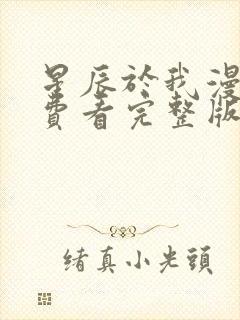 星辰於我漫
費看完整版
緒真小光頭